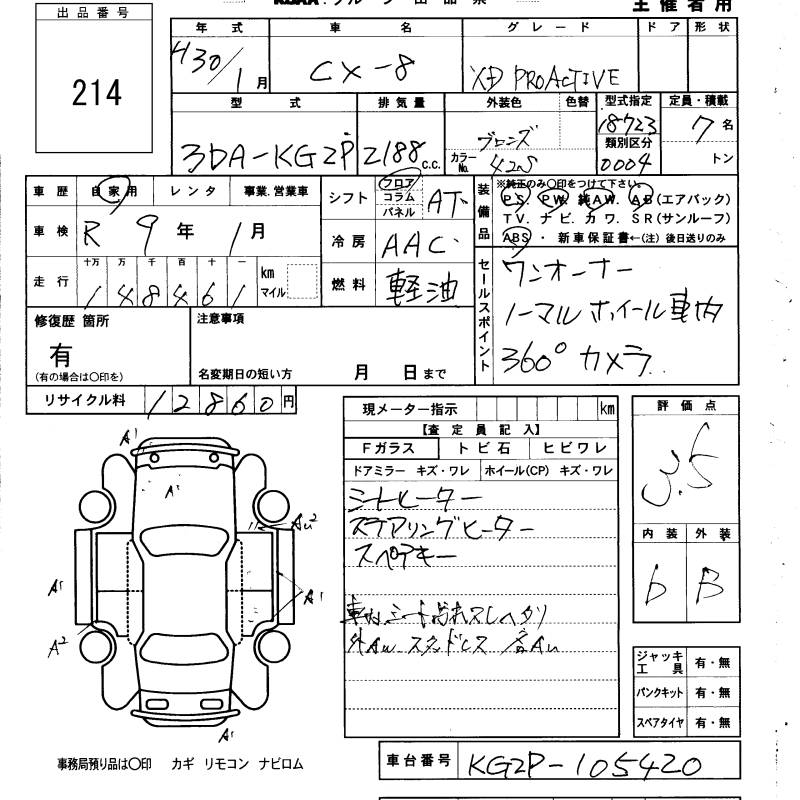 主催者用
出品番号
214
年式 車名 グレード ドア 形状
H30/1月 CX-8 XD PROACTIVE
型式 排気量 外装色 色替 型式指定 定員・積載
3DA-KG2P 2188 c.c. ブロンズ 18723 7名
カラーNo. 42S 類別区分 0004 トン
車歴 自家用 レンタ 事業.営業車
シフト フロア コラム パネル AT
装備品 ※純正のみ○印をつけて下さい。
PS. PW. 純AW. AB(エアバック)
TV. ナビ. カワ. SR(サンルーフ)
ABS ・ 新車保証書←(注) 後日送りのみ
車検 R 9年 1月
冷房 AAC
走行 十万 万 千 百 十 一
148461 km マイル
燃料 軽油
セールスポイント
ワンオーナー
ノーマルホイール車内
360°カメラ
修復歴 箇所
有
(有の場合は○印を)
注意事項
名変期日の短い方 月 日まで
リサイクル料 12860円
現メーター指示 km
【査定員記入】
Fガラス トビ石 ヒビワレ
ドアミラー キズ・ワレ ホイール(CP) キズ・ワレ
シートヒーター
ステアリングヒーター
スペアキー
評価点
3.5
内装 外装
b B
A1
A1
AU2
A1
A1
A2
A1
ジャッキ工具 有・無
パンクキット 有・無
スペアタイヤ 有・無
事務局預り品は○印 カギ リモコン ナビロム
車台番号 KG2P-105420